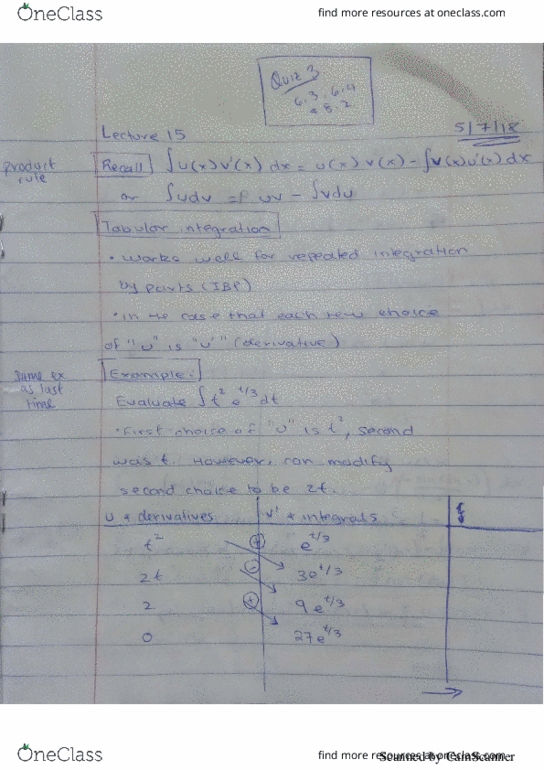 OneClass
find more resources at oneclass.com
Quiz 3
6.3, 6.4
& 8.2
Lecture 15
5/7/18
product rule
Recall ∫u(x)v'(x) dx = u(x) v(x) - ∫v(x)u'(x) dx
or ∫udv = uv - ∫vdu
Tabular integration
• works well for repeated integration
by parts (IBP)
• in the case that each new choice
of "u" is "u'" (derivative)
same ex
as last
time
Example:
Evaluate ∫t² e^t/3 dt
• First choice of "u" is t², second
was t. However, can modify
second choice to be 2t.
u & derivatives v' & integrals
t² + e^t/3
2t - 3e^t/3
2 + 9e^t/3
0 27e^t/3
OneClass
find more resources at oneclass.com
Scanned by CamScanner